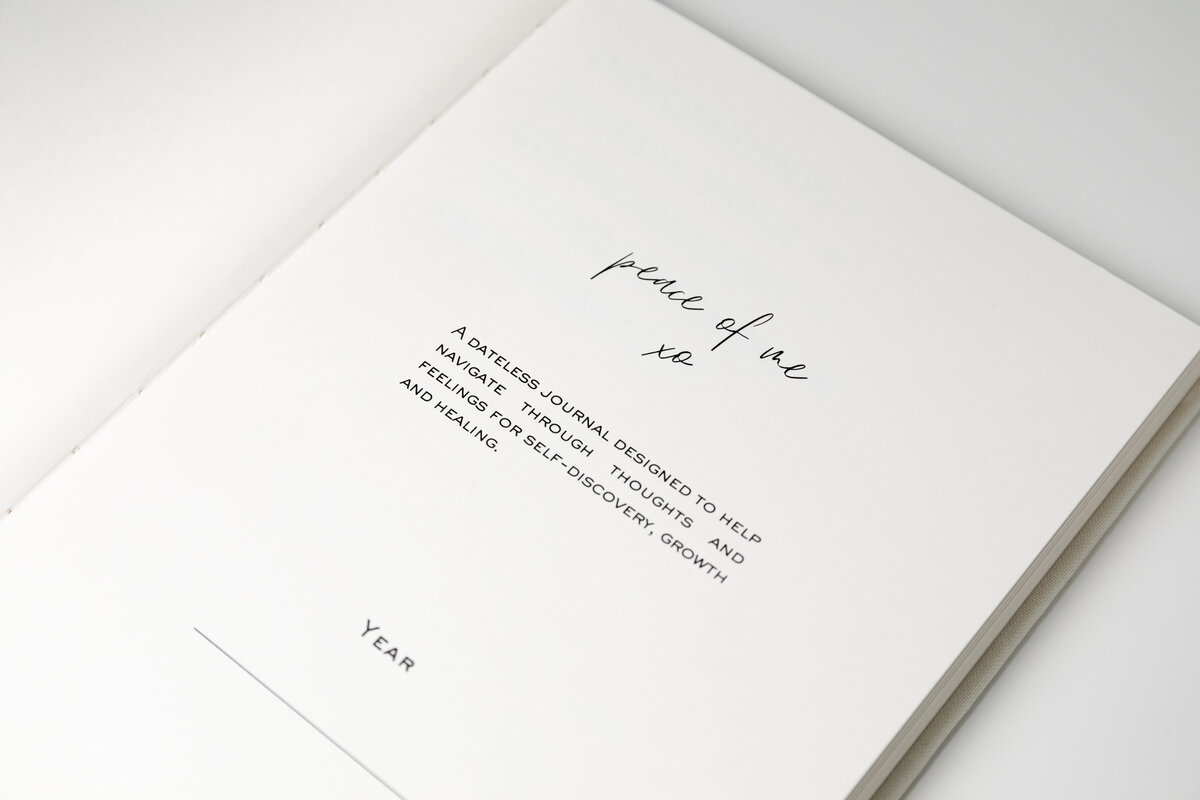 peace of me
xo
A DATELESS JOURNAL DESIGNED TO HELP
NAVIGATE THROUGH THOUGHTS AND
FEELINGS FOR SELF-DISCOVERY, GROWTH
AND HEALING.
YEAR